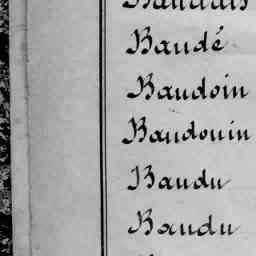 Baudé
Baudoin
Baudouin
Baudu
Baudu